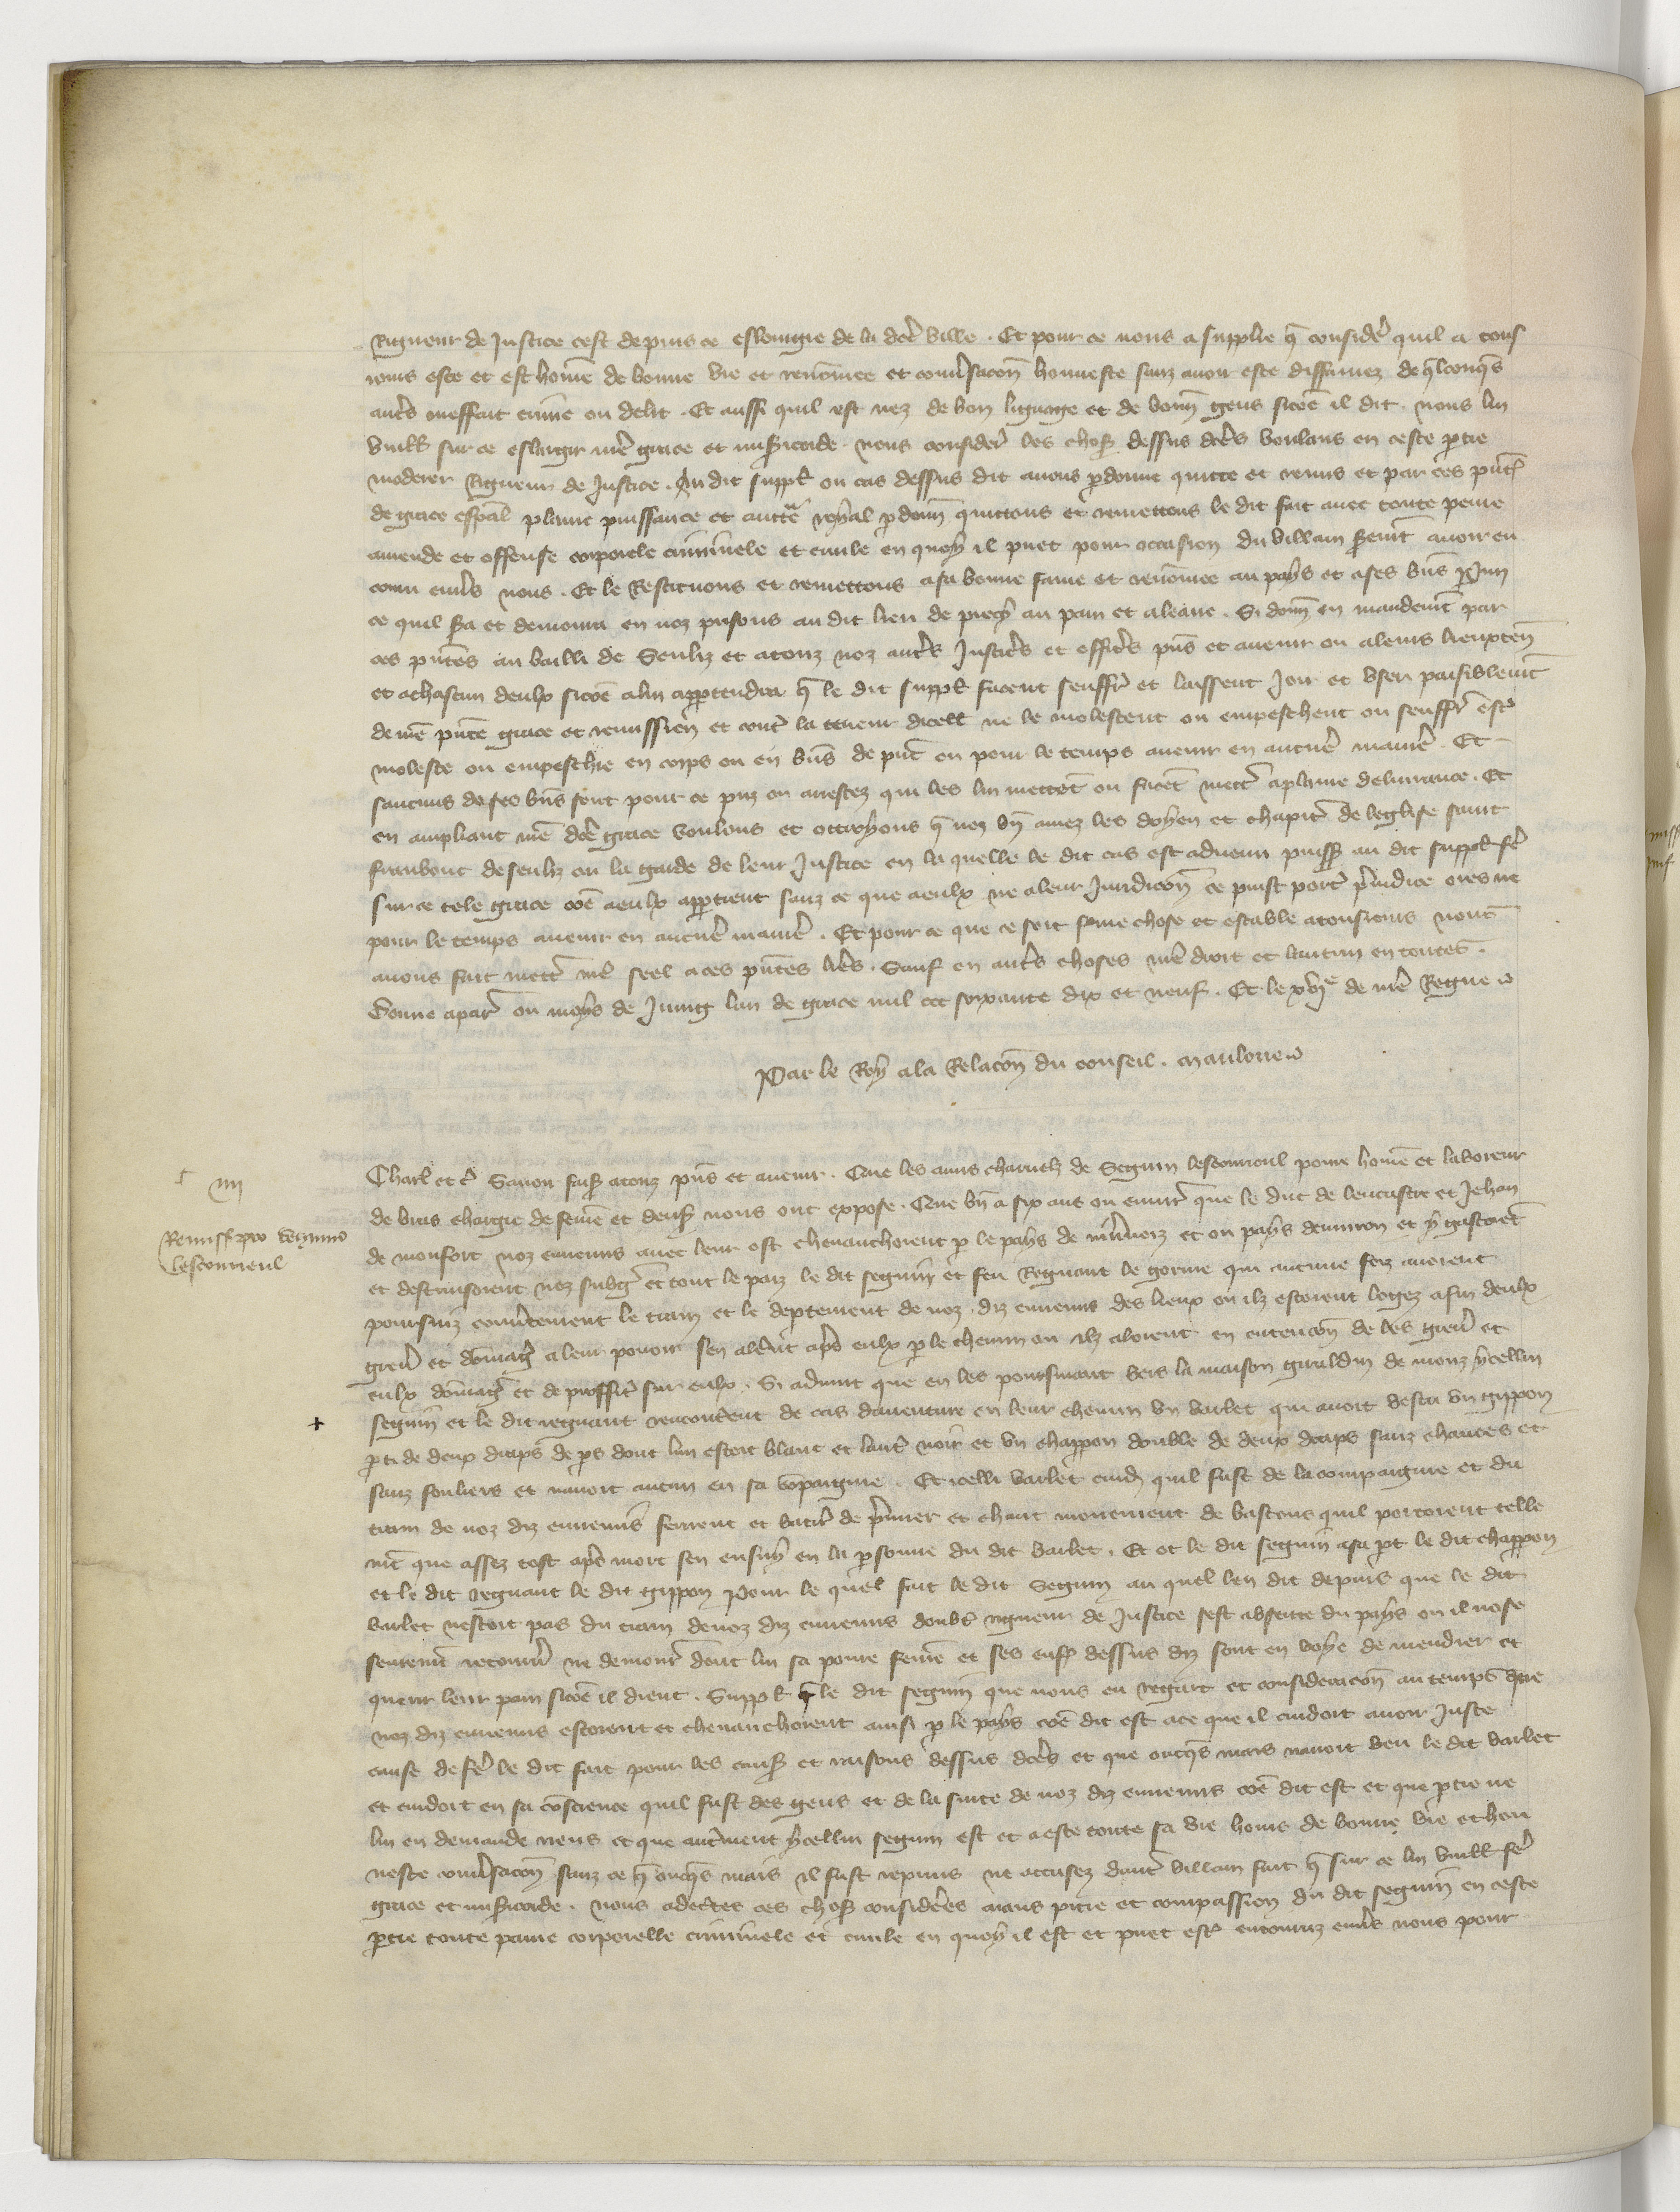 Rigueur de Justice cest depuis ce eslongie de la dcē ville . Et pour ce nous a supplie q̄ considē quil a tous
iours este et est hōme de bonne vie et renōmee et conūsacōn honneste sanz auoir este diffamez de q̄lconqs
autrs meffait crime ou delit . Et aussi quil est nez de bon lignage et de bonn gens sicōe il dit . nous lui
vuill sur ce eslargir nrē grace et misicorde . nous considē les chos dessus dcēs voulans en ceste ptie
moderer Rigueur de Justice . Au dit suppl ou cas dessus dit auons pdonne quitte et remis et par ces pñt
de grace espāl plaine puissance et auctē royal pdonn quittons et remettons le dit fait auec toute peine
amende et offense corporele criminele et ciuile en quoy il puet pour occasion du villain semt auoir en
couru enuers nous . Et le Restituons et remettons a sa bonne fame et renōmee au pays et a ses bns Pmi
ce quil sa et demoura en noz prisons au dit lieu de au pain et a leaue . Si donn en mandemt par
ces pntes au bailli de Senliz et a touz noz autrs Justicrs et officrs pns et auenir ou a leurs lieuxten
et a chascun deulx sicōe a lui appartendra q̄ le dit suppl facent seuffr et laissent Joir et vser paisiblemt
de nrē pnte grace et remission et contr la teneur dicell ne le molestent ou empeschent ou seuffr estr
moleste ou empeschie en corps ou en bns de pnt ou pour le temps auenir en aucune maniē . Et
saucuns de ses bns sont pour ce pris ou arrestez qui les lui mettent ou facent mettr a plaine deliurance . Et
en ampliant nrē dcē grace voulons et ottroyons q̄ noz bn amez les doyen et chapitr de leglise saint
frambout de senliz ou la garde de leur Justice en la quelle le dit cas est aduenu puiss au dit suppl fe
sur ce tele grace cōe a eulx appartient sanz ce que a eulx ne a leur Juridicōn ce puist porter preiudice ores ne
pour le temps auenir en aucune maniē . Et pour ce que ce soit ferme chose et estable a tousiours nous
auons fait mettr nrē seel a ces pntes lrēs . Sauf en autrs choses nrē droit et lautrui en toutes .
Donne a par ou moys de Juing lan de grace mil ccc soixante dix et neuf . Et le xvj^e de nrē Regne
Par le Roy a la Relacōn du conseil . mauloue
Charl etc Sauoir fais a touz pns et auenir . Que les amis charnelz de Seguin lescouueul poure hōme et laboreur
de bras chargie de feme et denf nous ont expose . Que bn a six ans ou enuir que le duc de lencastre et Jehan
Remiss pro Seguino
lescouueul
de monfort noz ennemis auec leur ost cheuauchoient p le pays de niuernoiz et ou pays denuiron et y gastoient
et destruisoient noz subg et tout le paiz le dit seguin et feu Regnaut le gorrue qui aucune foiz auoient
poursuiz le train et le deptement de noz diz ennemis des lieux ou ilz estoient logez afin deulx
greu et domag a leur pouoir sen alerent aps eulx p le chemin ou ilz aloient en entencōn de les greu et
eulx domag et de proffit sur eulx . Si aduint que en les poursuiant vers la maison giraldin de monz ycellui
seguin et le dit regnaut rencontrent de cas dauenture en leur chemin vn varlet qui auoit vestu vn gippon
pti de deux draps de ps dont lun estoit blanc et lautr noir et vn chappon double de deux draps sanz chauces et
sanz souliers et nauoit aucun en sa cōpaignie . Et icelli varlet cuid quil fust de la compaignie et du
train de noz diz ennemis ferirent et batirt de pmier et chaut mouement de bastons quil portoient telle
mt que assez tost aps mort sen ensuy en la psonne du dit varlet . Et ot le dit seguin a sa pt le dit chappon
et le dit regnaut le dit gippon Pour le quel fait le dit Seguin au quel len dit depuis que le dit
varlet nestoit pas du train de noz diz ennemis doubt rigueur de Justice sest absente du pays ou il nose
seuremt retourn ne demour dont lui sa poure feme et ses enf dessus diz sont en voye de mendier et
querir leur pain sicōe il dient . Suppl q̄ le dit seguin que nous eu regart et consideracōn au temps que
noz diz ennemis estoient et cheuauchoient ainsi p le pays cōe dit est a ce que il cuidoit auoir Juste
cause de fe le dit fait pour les caus et raisons dessus dcēs et que oncqs mais nauoit veu le dit varlet
et cuidoit en sa cōscience quil fust des gens et de la suite de noz diz ennemis cōe dit est et que ptie ne
lui en demande riens et que autrement ycellui seguin est et a este toute sa vie homs de bonne vie et hon
neste conūsacōn sanz ce q̄ oncqs mais il fust repris ne accusez dautr villain fait q̄ sur ce lui vuill fe
grace et misicorde . nous adectes ces chos considērees aians pitie et compassion du dit seguin en ceste
ptie toute paine corporelle criminele et ciuile en quoy il est et puet estr encouruz enuers nous pour